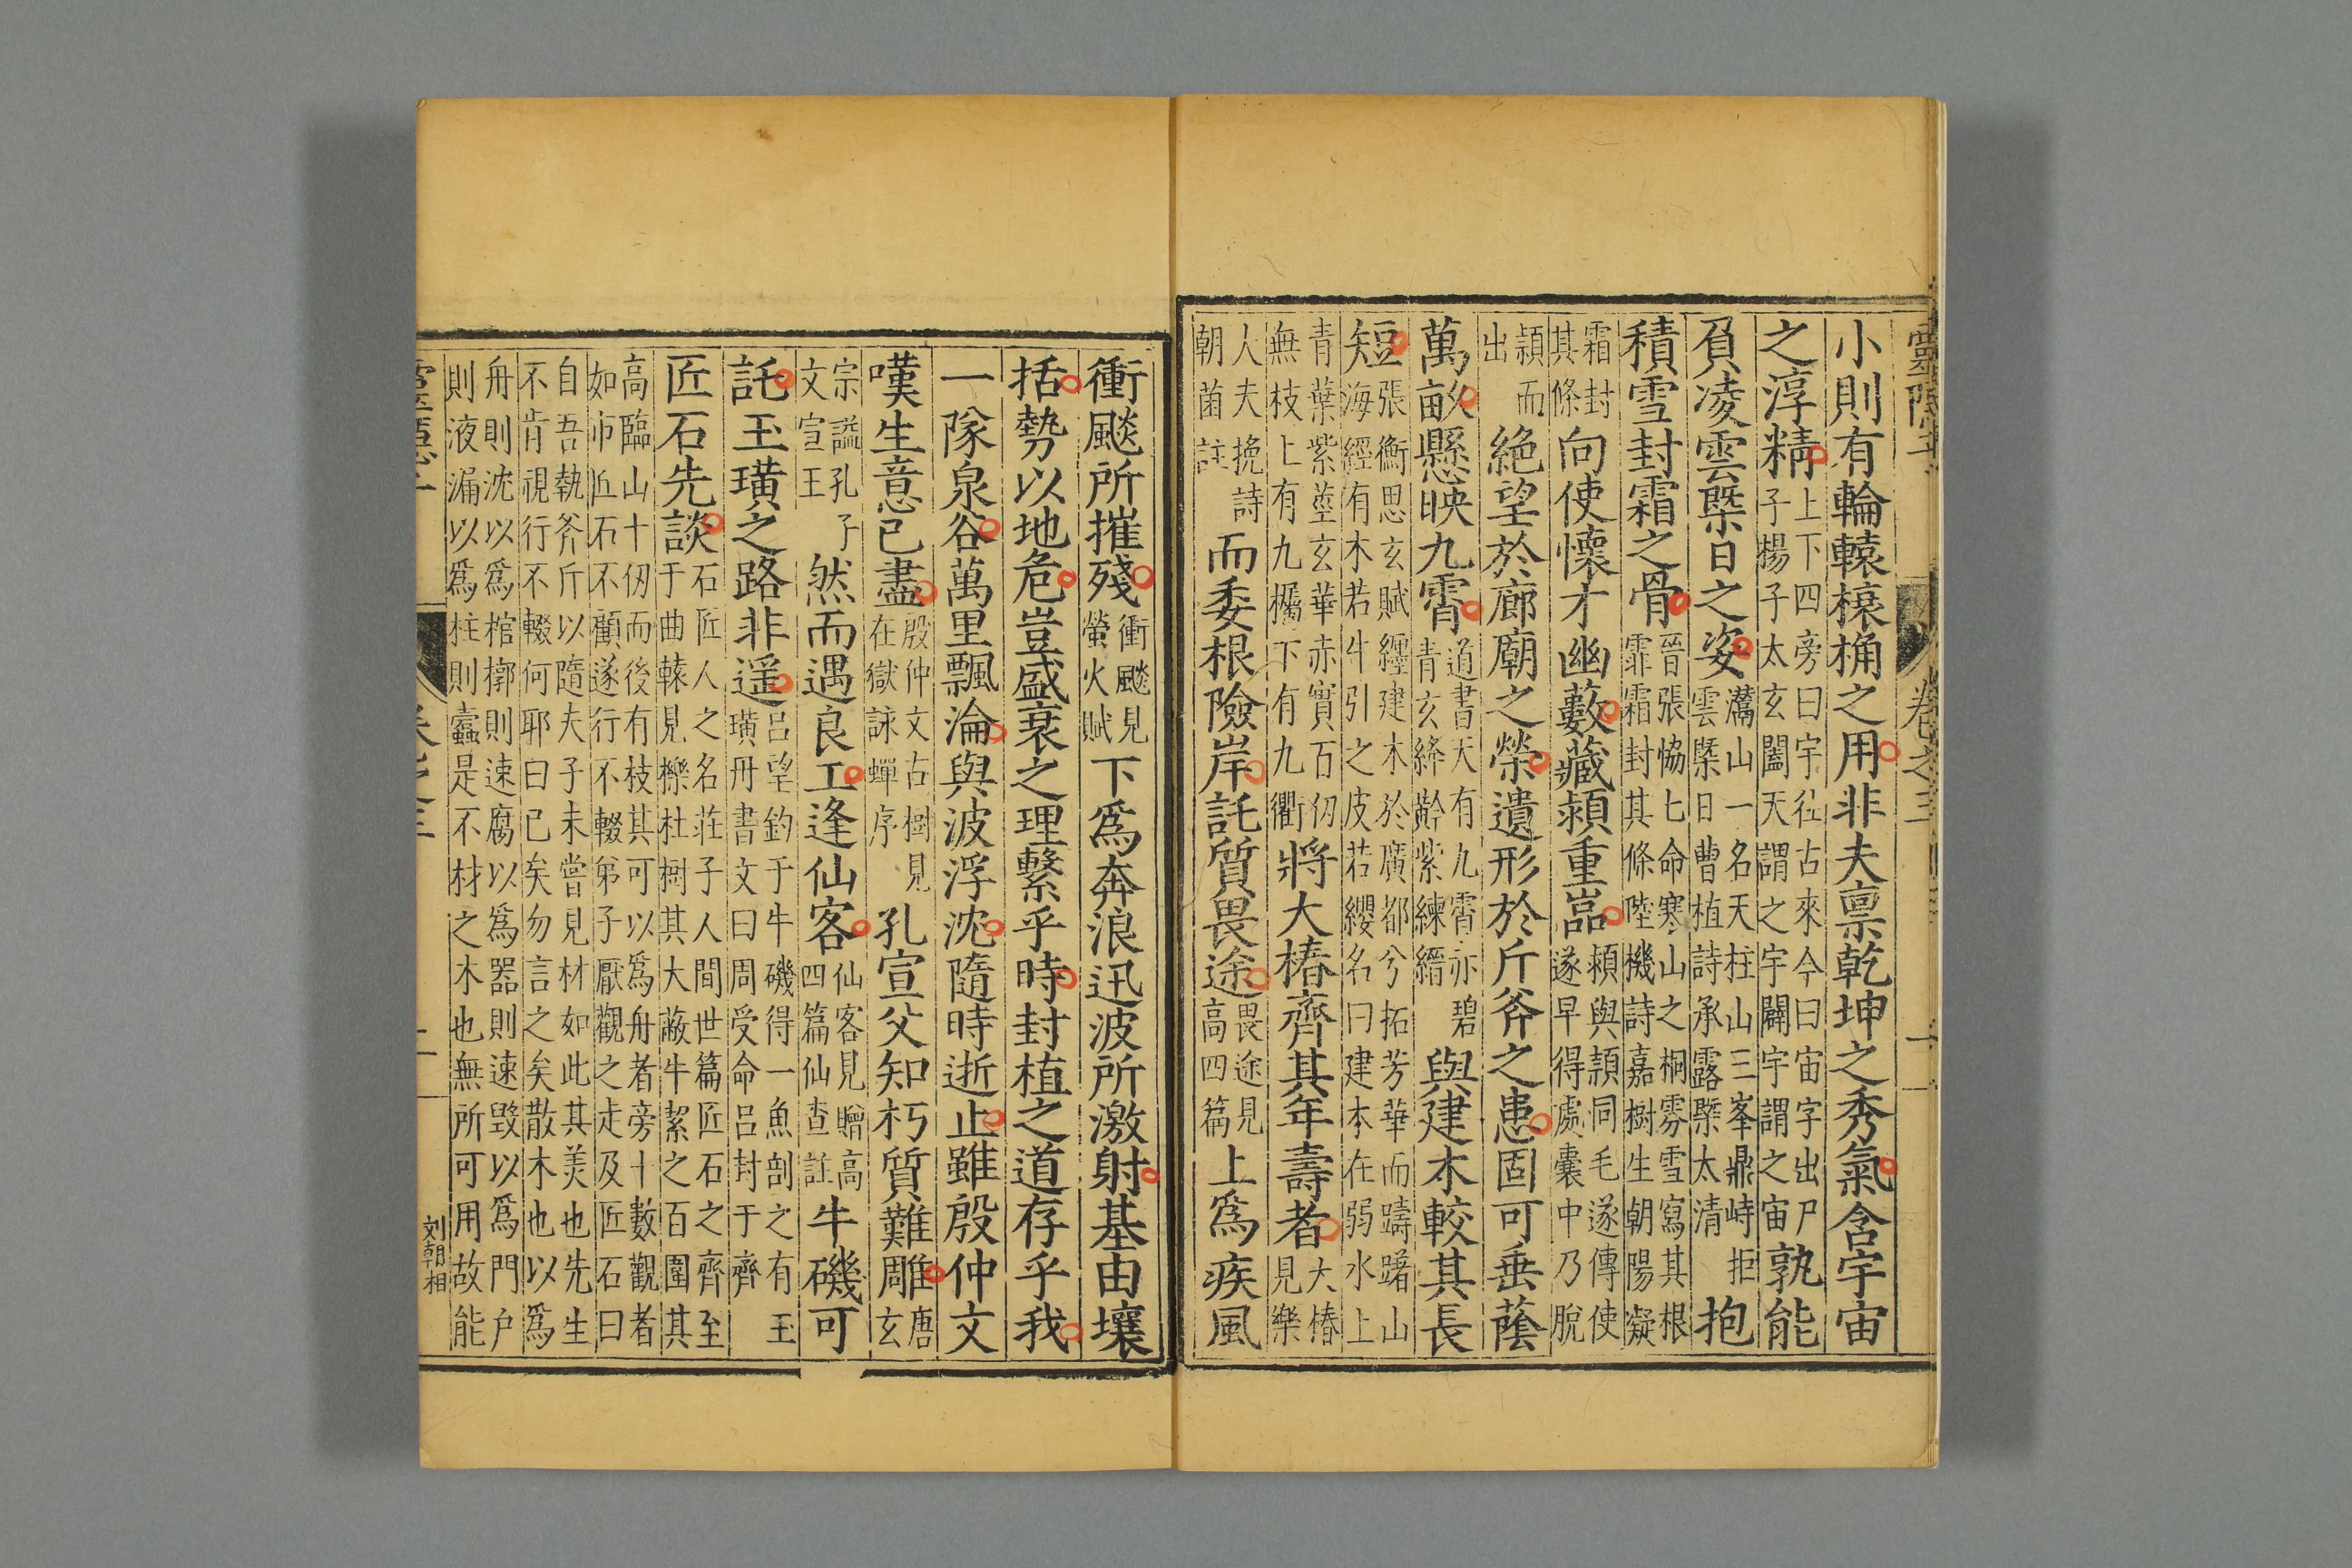 小則有輪轅榱桷之用非夫禀乾坤之秀氣含宇宙
之淳精
上下四旁曰宇徃古來今曰宙字出尸
子楊子太玄闔天謂之宇闢宇謂之宙
孰能
負凌雲槩日之姿
灊山一名天柱山三峯鼎峙拒
雲槩日曹植詩承露槩太清
抱
積雪封霜之骨
晉張恊七命寒山之桐雰雪寫其根
霏霜封其條陸機詩嘉樹生朝陽凝
霜封
其條
向使懷才幽藪藏頴重嵓
頴與頴同毛遂傳使
遂早得處囊中乃脫
頴而
出
絶望於廊廟之榮遺形於斤斧之患固可垂蔭
萬畝懸映九霄
道書天有九霄亦碧
青玄絳黅紫練縉
與建木較其長
短
張衡思玄賦纒建木於廣都兮拓芳華而躊躇山
海經有木若牛引之皮若纓名曰建木在弱水上
青葉紫莖玄華赤實百仞
無枝上有九欘下有九衢
將大椿齊其年壽者
大椿
見樂
人夫挽詩
朝菌註
而委根險岸託質畏途
畏途見
高四篇
上爲疾風
靈隱子
卷之三
衝飈所摧殘
衝飈見
螢火賦
下爲奔浪迅波所激射基由壤
括勢以地危豈盛衰之理繫乎時封植之道存乎我
一隊泉谷萬里飄淪與波浮沈隨時逝止雖殷仲文
嘆生意已盡
殷仲文古樹見
在獄詠蟬序
孔宣父知朽質難雕
唐玄
宗謚孔子
文宣王
然而遇良工逢仙客
仙客見贈高
四篇仙查註
牛磯可
託玉璜之路非遥
吕望釣于牛磯得一魚剖之有玉
璜冊書文曰周受命吕封于齊
匠石先談
石匠人之名莊子人間世篇匠石之齊至
于曲轅見櫟社樹其大蔽牛絜之百圍其
高臨山十仞而後有枝其可以爲舟者旁十數觀者
如市匠石不顧遂行不輟弟子厭觀之走及匠石曰
自吾執斧斤以隨夫子未嘗見材如此其美也先生
不肯視行不輟何耶曰已矣勿言之矣散木也以爲
舟則沈以爲棺槨則速腐以爲噐則速毀以爲門户
則液漏以爲柱則蠧是不材之木也無所可用故能
刘朝相